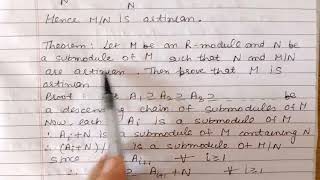 N N
Hence M/N is artinian.
Theorem: Let M be an R-module and N be
a submodule of M such that N and M/N
are artinian. Then prove that M is
artinian
Proof ≥ A₁ ≥ A₂ ≥ be
a descending chain of submodules of M
Now, each Aᵢ is a submodule of M
∴ Aᵢ+N is a submodule of M containing N
∴ (Aᵢ+N)/ is a submodule of M/N
since Aᵢ₊₁ ∀ i≥1
∴ ≥ Aᵢ₊₁ +N ∀ i≥1